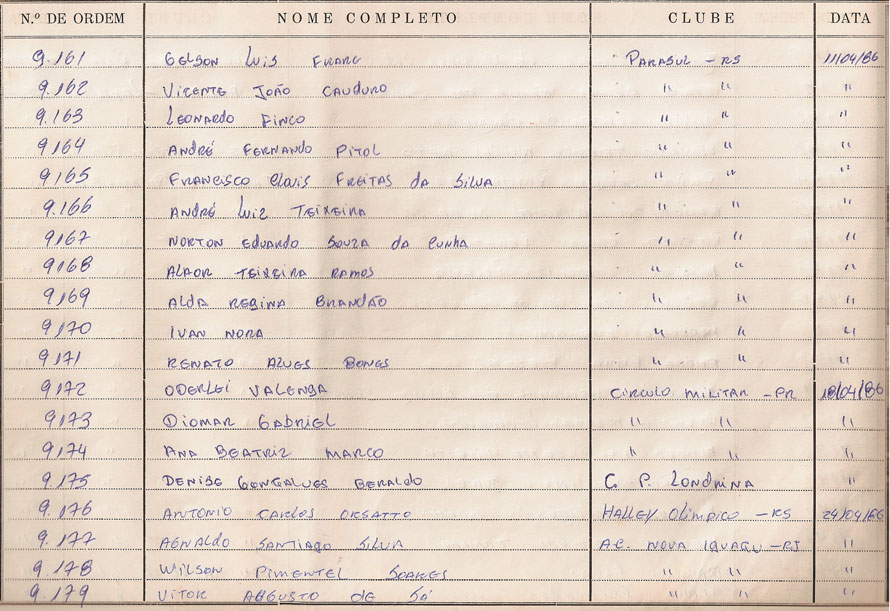 N.º DE ORDEM NOME COMPLETO CLUBE DATA
9.161 GELSON LUIS FRARE PARASUL - RS 11/04/86
9.162 VICENTE JOÃO CAUDURO " " "
9.163 LEONARDO FINCO " " "
9164 ANDRÉ FERNANDO PITOL " " "
9165 FRANCISCO CLOVIS FREITAS da SILVA " " "
9.166 ANDRÉ LUIZ TEIXEIRA " " "
9167 NORTON EDUARDO SOUZA da CUNHA " " "
9168 ALAOR TEIXEIRA RAMOS " " "
9169 ALDA REGINA BRANDÃO " " "
9170 IVAN NORA " " "
9171 RENATO ALVES BONES " " "
9172 ODERLEI VALENGA CIRCULO MILITAR - PR 18/04/86
9173 DIOMAR GABRIEL " " "
9.174 ANA BEATRIZ MARCO " " "
9.175 DENISE GONÇALVES BERALDO C. P. LONDRINA "
9.176 ANTONIO CARLOS ORSATTO HALLEY OLÍMPICO - RS 24/04/86
9.177 AGNALDO SANTIAGO SILVA A.C. NOVA IGUAÇU - RJ "
9.178 WILSON PIMENTEL SOARES " " "
9.179 VITOR AUGUSTO DE SÁ " " "